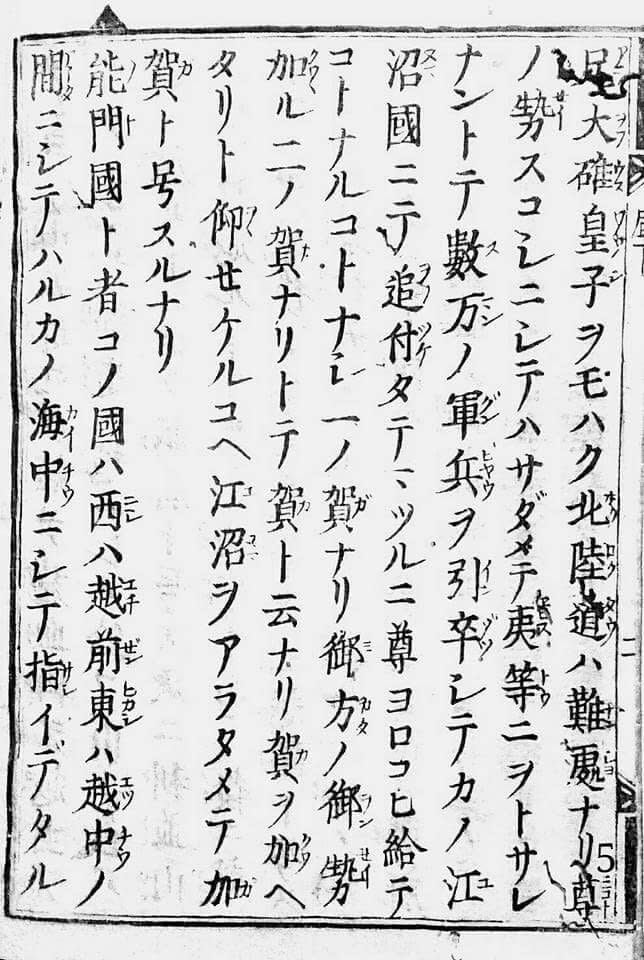 兄大碓皇子ヲモハク北陸道ハ難処ナリ尊
ノ勢スコシニシテハサダメテ夷等ニヲトサレ
ナントテ數万ノ軍兵ヲ引卒シテカノ江
沼國ニテ追付タテマツルニ尊ヨロコヒ給テ
コトナルコトナシ一ノ賀ナリ御方ノ御勢
加ルニノ賀ナリトテ賀ト云ナリ賀ヲ加ヘ
タリト仰せケルコヘ江沼ヲアラタメテ加
賀ト号スルナリ
能門國ト者コノ國ハ西ハ越前東ハ越中ノ
間ニシテノハルカノ海中ニシテ指イデタル